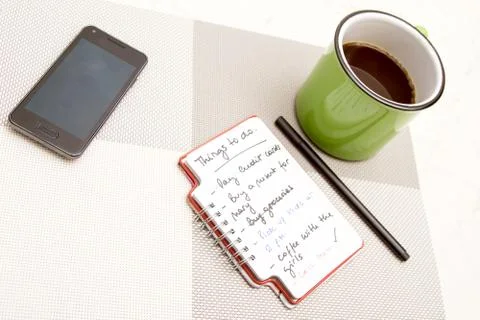 Things to do:
- Pay credit cards
- Buy a present for
mary
- Buy groceries
- Pick up kids at
2 pm
- coffee with the
girls ✓